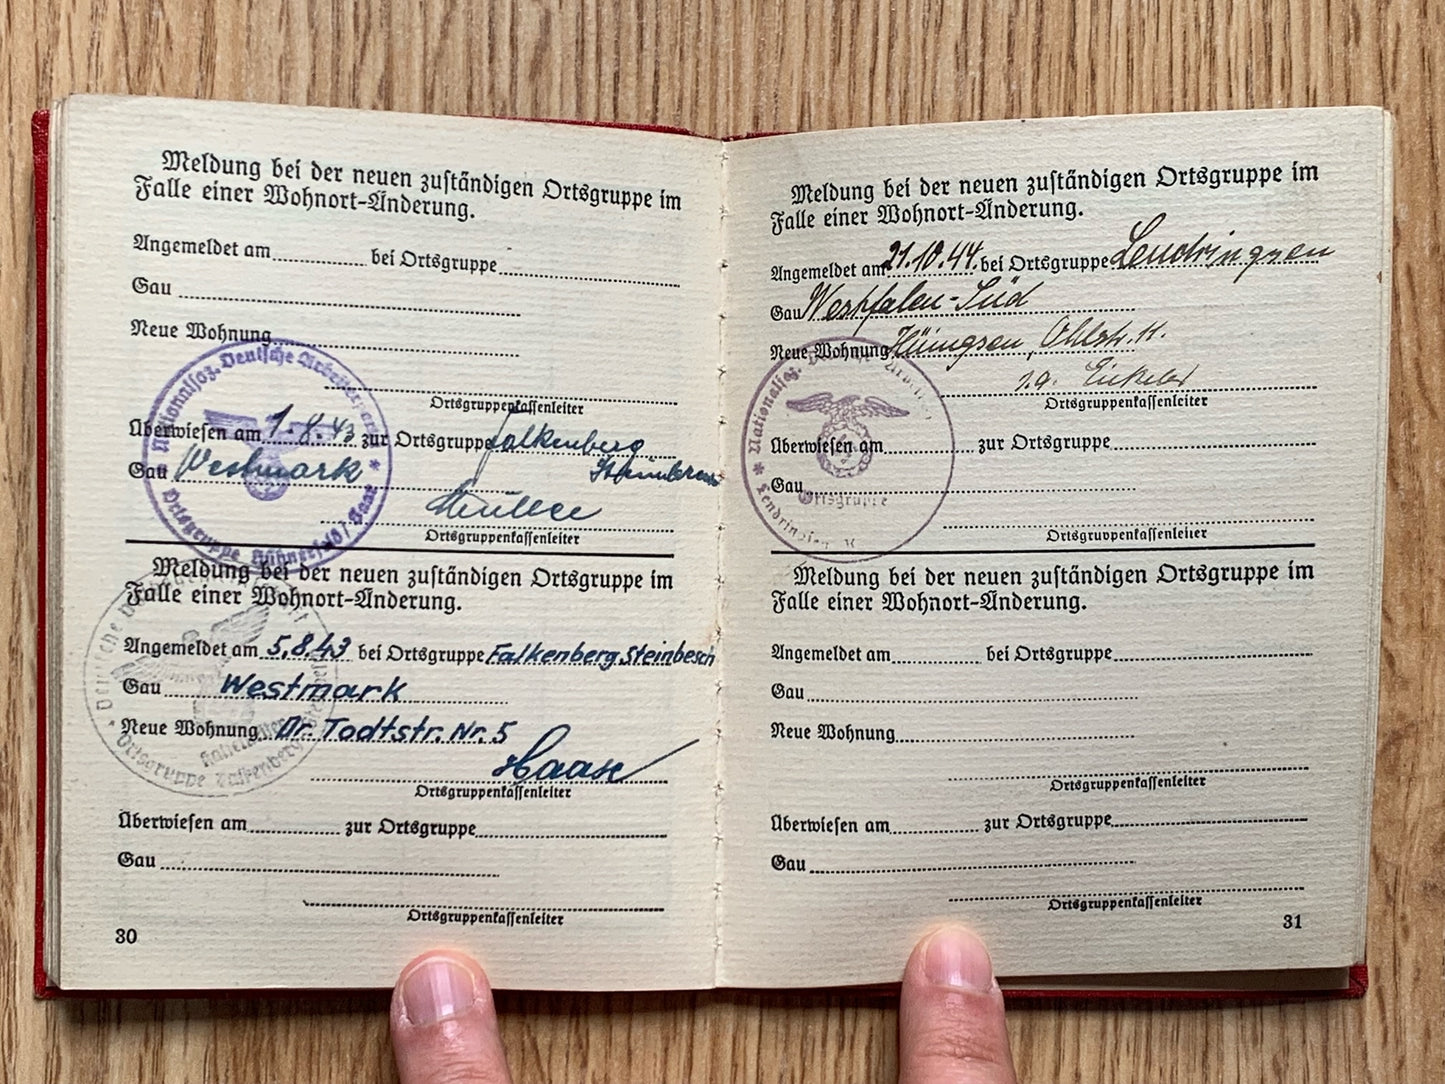 Meldung bei der neuen zuständigen Ortsgruppe im
Falle einer Wohnort-Änderung.
Angemeldet am bei Ortsgruppe
Gau
Neue Wohnung
Ortsgruppenkassenleiter
Überwiesen am 1.8.43 zur Ortsgruppe Falkenberg
Gau Westmark
Müller
Ortsgruppenkassenleiter
Nationalsoz. Deutsche Arbeiterpartei
Ortsgruppe Hühnerfeld/Saar
Meldung bei der neuen zuständigen Ortsgruppe im
Falle einer Wohnort-Änderung.
Angemeldet am 5.8.43 bei Ortsgruppe Falkenberg Steinbesch
Gau Westmark
Neue Wohnung Dr. Todtstr. Nr. 5
Haase
Ortsgruppenkassenleiter
Ortsgruppe Falkenberg
Überwiesen am zur Ortsgruppe
Gau
Ortsgruppenkassenleiter
30
Meldung bei der neuen zuständigen Ortsgruppe im
Falle einer Wohnort-Änderung.
Angemeldet am 21.10.44. bei Ortsgruppe Lendringsen
Gau Westfalen-Süd
Neue Wohnung Hüingsen, Ohlstr. 11.
Ortsgruppenkassenleiter
Überwiesen am zur Ortsgruppe
Gau
Ortsgruppenkassenleiter
Nationalsoz. Deutsche Arbeiter
Ortsgruppe
Lendringsen
Meldung bei der neuen zuständigen Ortsgruppe im
Falle einer Wohnort-Änderung.
Angemeldet am bei Ortsgruppe
Gau
Neue Wohnung
Ortsgruppenkassenleiter
Überwiesen am zur Ortsgruppe
Gau
Ortsgruppenkassenleiter
31